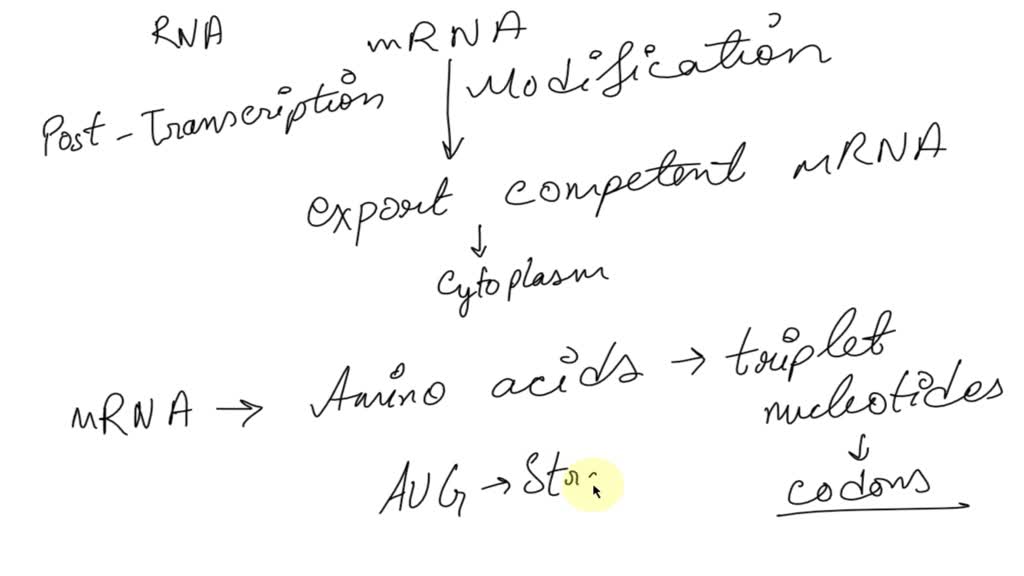 RNA mRNA
Post-Transcription Modification
export competent mRNA
↓
Cytoplasm
mRNA → Amino acids → triplet
nucleotides
↓
codons
AUG →